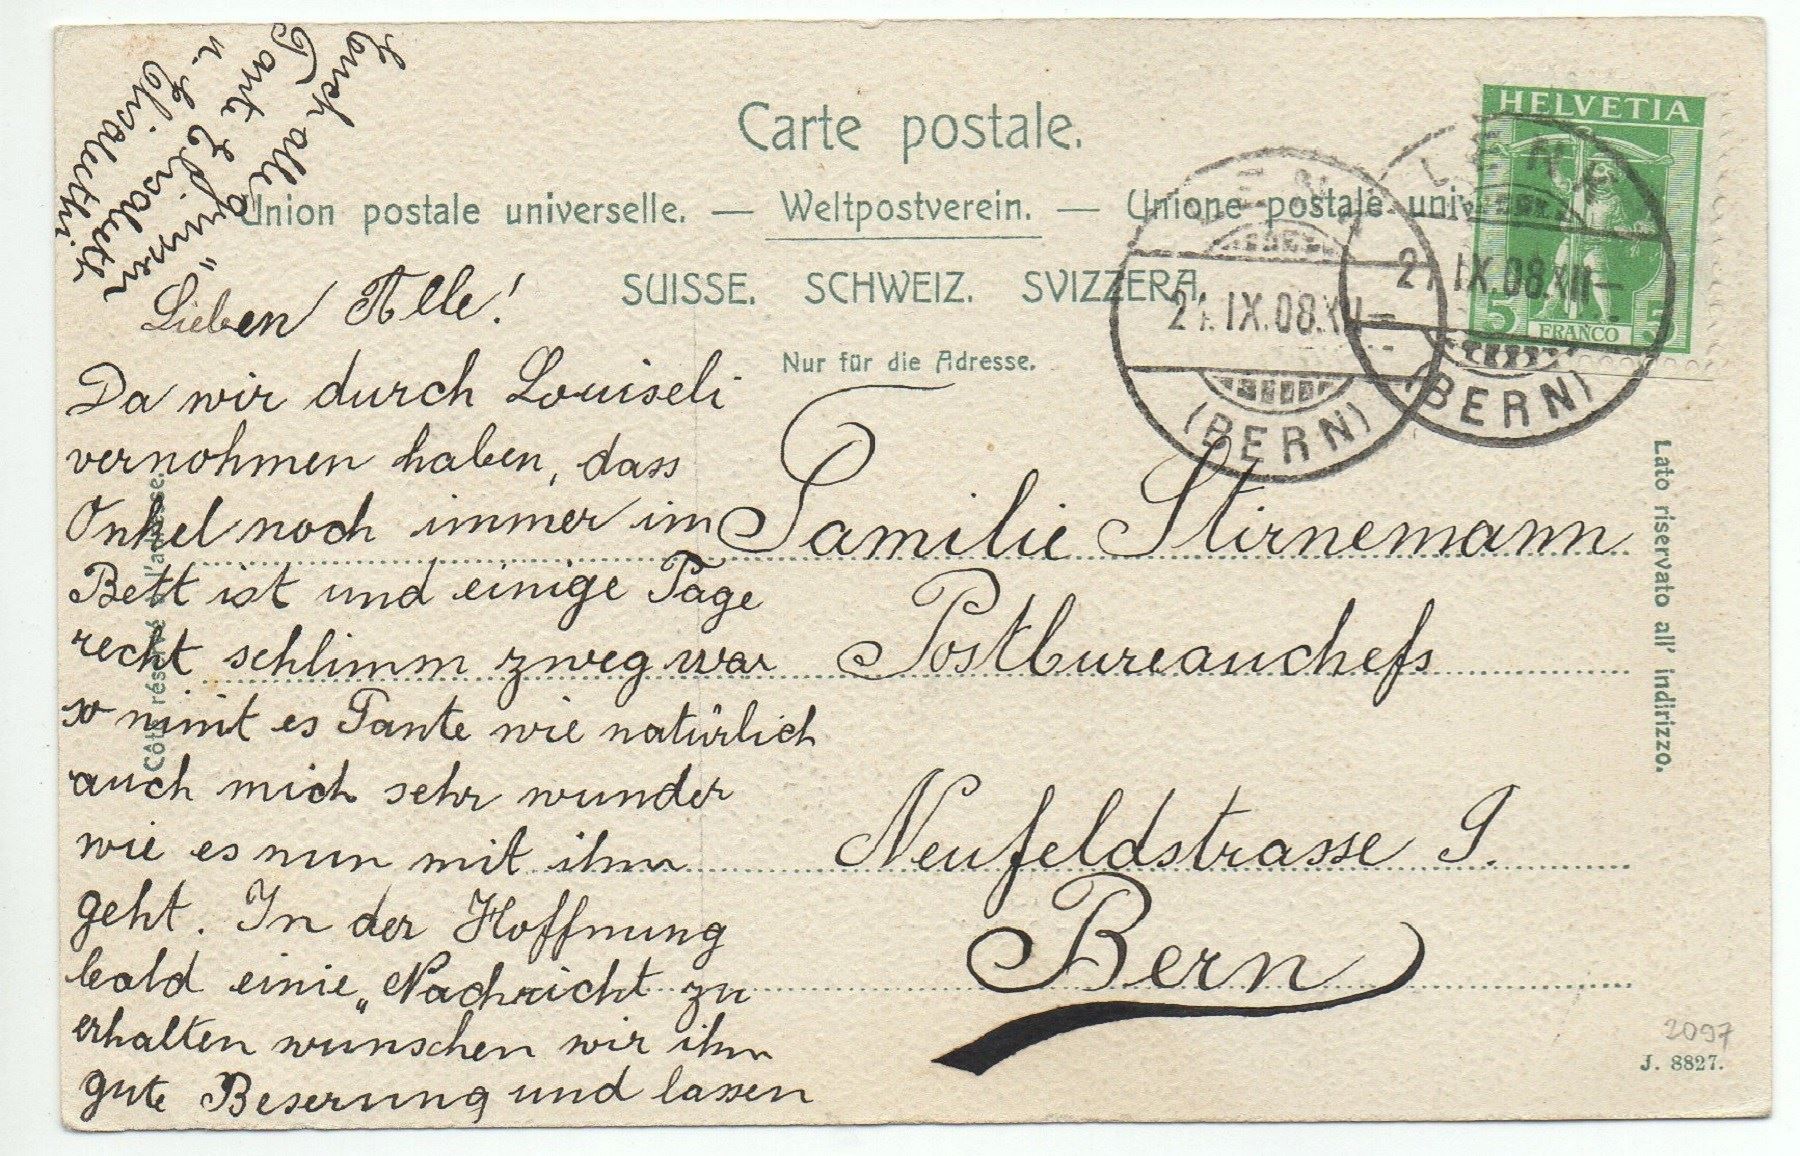 Carte postale.
Union postale universelle. — Weltpostverein. — Unione postale uni
SUISSE. SCHWEIZ. SVIZZERA.
Nur für die Adresse.
Côté réservé à l'adresse.
Lato riservato all' indirizzo.
HELVETIA
5 FRANCO 5
LENK
21.IX.08.XII—
(BERN)
LENK
21.IX.08.XII—
(BERN)
Lieben Alle!
Da wir durch Louiseli
vernohmen haben, dass
Onkel noch immer im
Bett ist und einige Tage
recht schlimm zweg war
so nimt es Tante wie natürlich
auch mich sehr wunder
wie es nun mit ihm
geht. In der Hoffnung
bald einie „Nachricht zu
erhalten wünschen wir ihm
gute Beserung und lassen
Euch alle grüssen
Tante Elisabeth
u. Elisabethli
Familie Stirnemann
Postbureauchefs
Neufeldstrasse 9.
Bern
2097
J. 8827.